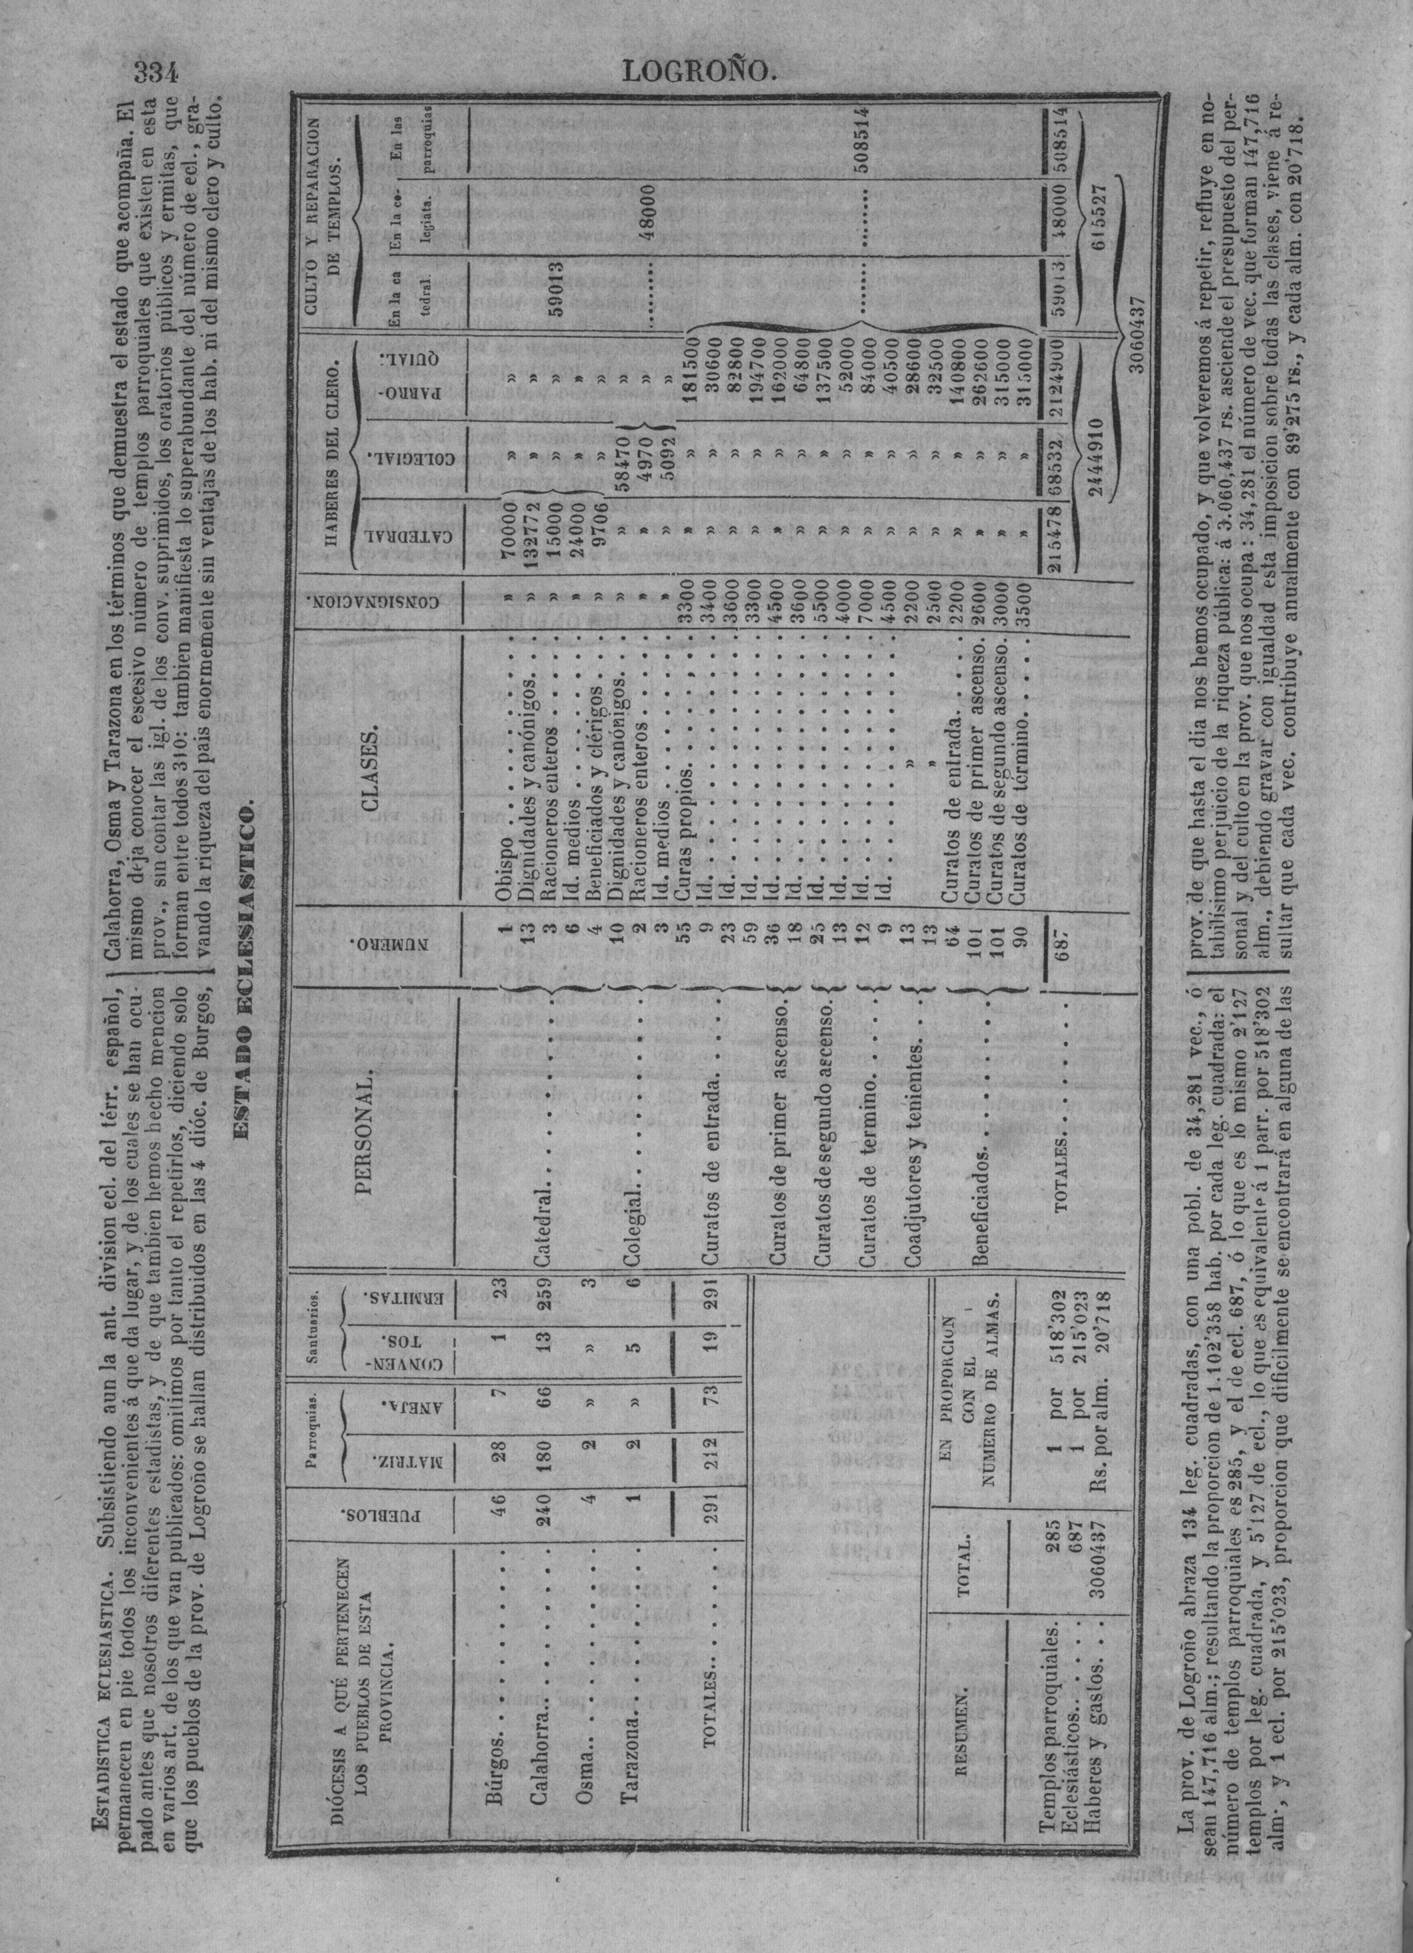 334
LOGROÑO.
ESTADISTICA ECLESIASTICA. Subsistiendo aun la ant. division ecl. del térr. español,
permanecen en pie todos los inconvenientes á que da lugar, y de los cuales se han ocu-
pado antes que nosotros diferentes estadistas, y de que tambien hemos hecho mencion
en varios art. de los que van publicados: omitimos por tanto el repetirlos, diciendo solo
que los pueblos de la prov. de Logroño se hallan distribuidos en las 4 dióc. de Burgos,
Calahorra, Osma y Tarazona en los términos que demuestra el estado que acompaña. El
mismo deja conocer el escesivo número de templos parroquiales que existen en esta
prov., sin contar las igl. de los conv. suprimidos, los oratorios públicos y ermitas, que
forman entre todos 310: tambien manifiesta lo superabundante del número de ecl., gra-
vando la riqueza del pais enormemente sin ventajas de los hab. ni del mismo clero y culto.
ESTADO ECLESIASTICO.
DIÓCESIS A QUÉ PERTENECEN
LOS PUEBLOS DE ESTA
PROVINCIA.
PUEBLOS.
Parroquias.
MATRIZ.
ANEJA.
Santuarios.
CONVEN-
TOS.
ERMITAS.
Búrgos. 46 28 7 1 23
Calahorra. 240 180 66 13 259
Osma. 4 2 » » 3
Tarazona. 1 2 » 5 6
TOTALES. 291 212 73 19 291
RESUMEN.
TOTAL.
EN PROPORCION
CON EL
NÚMERRO DE ALMAS.
Templos parroquiales. 285 1 por 518'302
Eclesiásticos. 687 1 por 215'023
Haberes y gastos. 3060437 Rs. por alm. 20'718
PERSONAL.
NUMERO.
CLASES.
CONSIGNACION.
HABERES DEL CLERO.
CATEDRAL
COLEGIAL.
PARRO-
QUIAL.
CULTO Y REPARACION
DE TEMPLOS.
En la ca
tedral.
En la co-
legiata.
En las
parroquias
Catedral.
1 Obispo » 70000 » »
13 Dignidades y canónigos. » 132772 » »
3 Racioneros enteros » 15000 » » 59013
6 Id. medios » 24000 » »
4 Beneficiados y clérigos » 9706 » »
Colegial.
10 Dignidades y canónigos. » » 58470 »
2 Racioneros enteros » » 4970 » 48000
3 Id. medios » » 5092 »
Curatos de entrada.
55 Curas propios. 3300 » » 181500
9 Id. 3400 » » 30600
23 Id. 3600 » » 82800
59 Id. 3300 » » 194700
Curatos de primer ascenso.
36 Id. 4500 » » 162000
18 Id. 3600 » » 64800
Curatos de segundo ascenso.
25 Id. 5500 » » 137500
13 Id. 4000 » » 52000
Curatos de termino.
12 Id. 7000 » » 84000 508514
9 Id. 4500 » » 40500
Coadjutores y tenientes.
13 » 2200 » » 28600
13 » 2500 » » 32500
Beneficiados.
64 Curatos de entrada. 2200 » » 140800
101 Curatos de primer ascenso. 2600 » » 262600
101 Curatos de segundo ascenso. 3000 » » 315000
90 Curatos de término. 3500 » » 315000
TOTALES. 687 215478 68532 2124900 59013 48000 508514
2444910 615527
3060437
La prov. de Logroño abraza 134 leg. cuadradas, con una pobl. de 34,281 vec., ó
sean 147,716 alm.; resultando la proporcion de 1.102'358 hab. por cada leg. cuadrada: el
número de templos parroquiales es 285, y el de ecl. 687, ó lo que es lo mismo 2'127
templos por leg. cuadrada, y 5'127 de ecl., lo que es equivalente á 1 parr. por 518'302
alm., y 1 ecl. por 215'023, proporcion que dificilmente se encontrará en alguna de las
prov. de que hasta el dia nos hemos ocupado, y que volveremos á repetir, refluye en no-
tabilísimo perjuicio de la riqueza pública: á 3.060,437 rs. asciende el presupuesto del per-
sonal y del culto en la prov. que nos ocupa: 34,281 el número de vec. que forman 147,716
alm., debiendo gravar con igualdad esta imposicion sobre todas las clases, viene á re-
sultar que cada vec. contribuye anualmente con 89'275 rs., y cada alm. con 20'718.